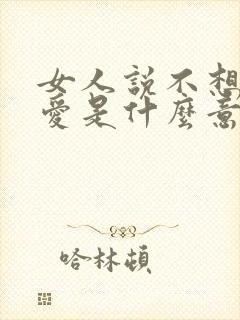 女人説不想
愛是什麼意
哈林頓